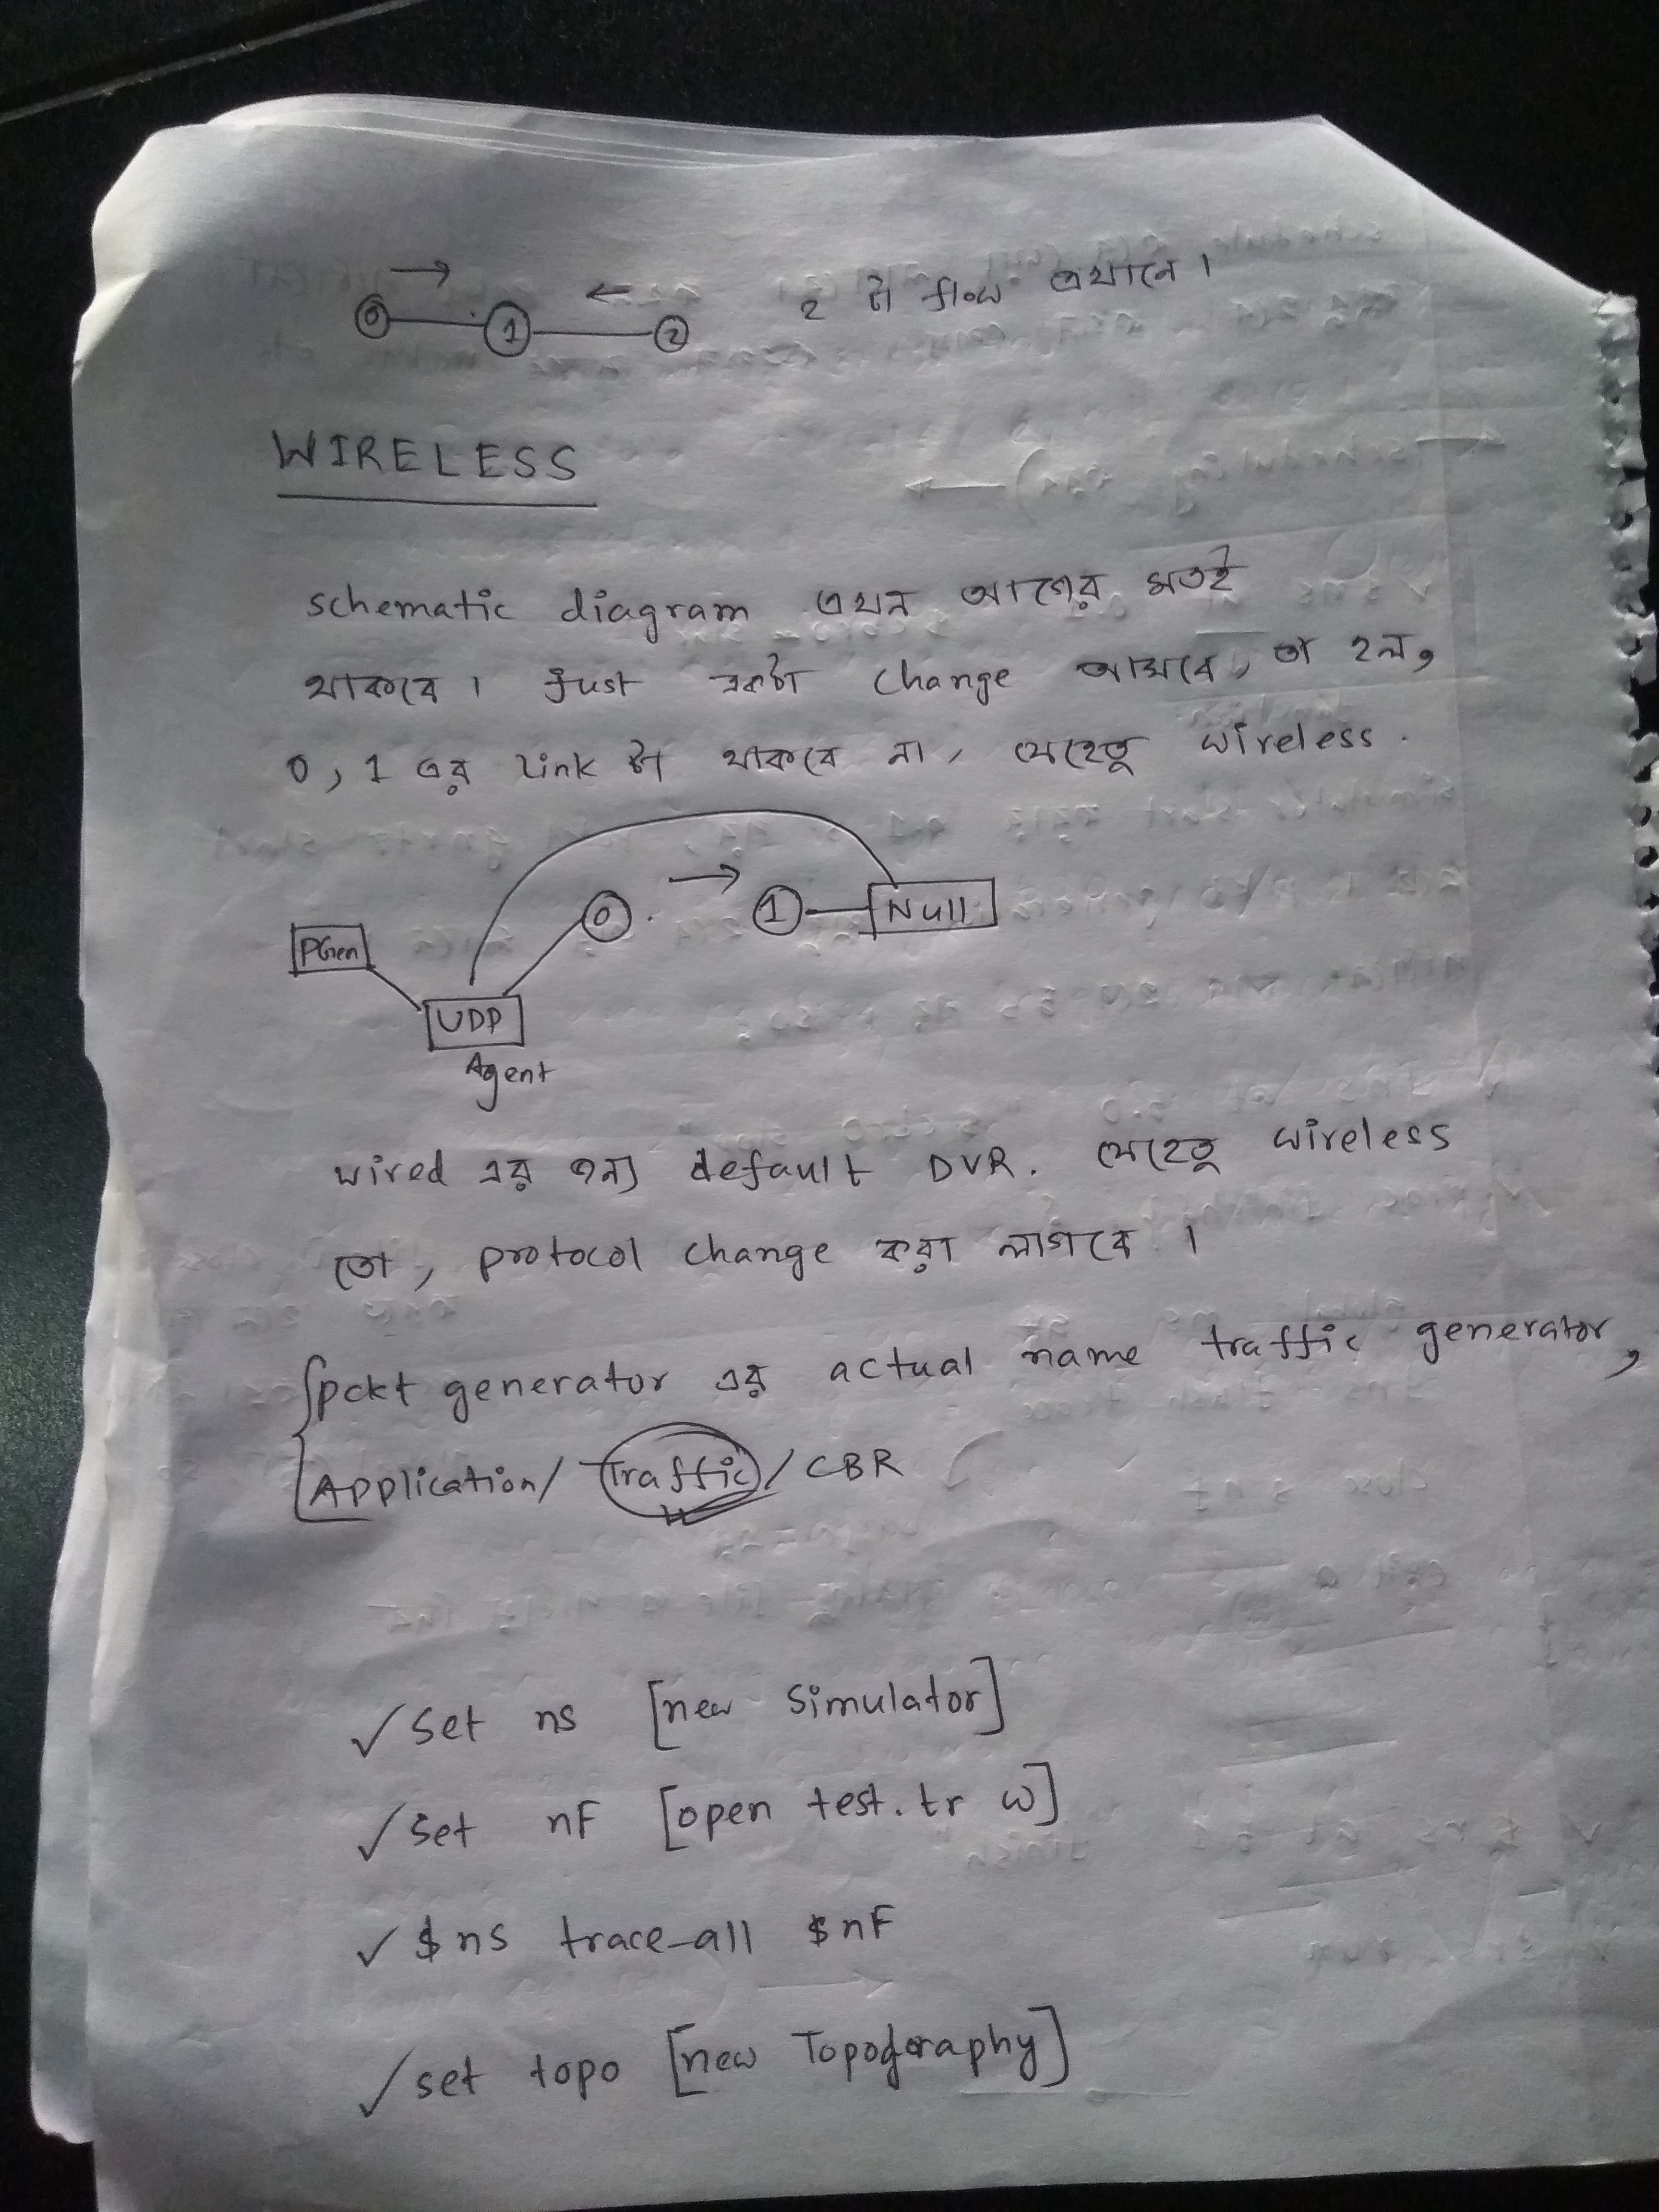 0 1 2 2 টা flow এখানে।
WIRELESS
schematic diagram এখন আগের মতই
থাকবে। Just একটা change আসবে, তা হল,
0, 1 এর link টা থাকবে না, যেহেতু wireless.
0 1 Null
PGen
UDP
Agent
wired এর জন্য default DVR. যেহেতু wireless
তো, protocol change করা লাগবে।
pckt generator এর actual name traffic generator,
Application/ Traffic / CBR
✓ set ns [new Simulator]
✓ set nF [open test.tr w]
✓ $ns trace-all $nF
✓ set topo [new Topography]